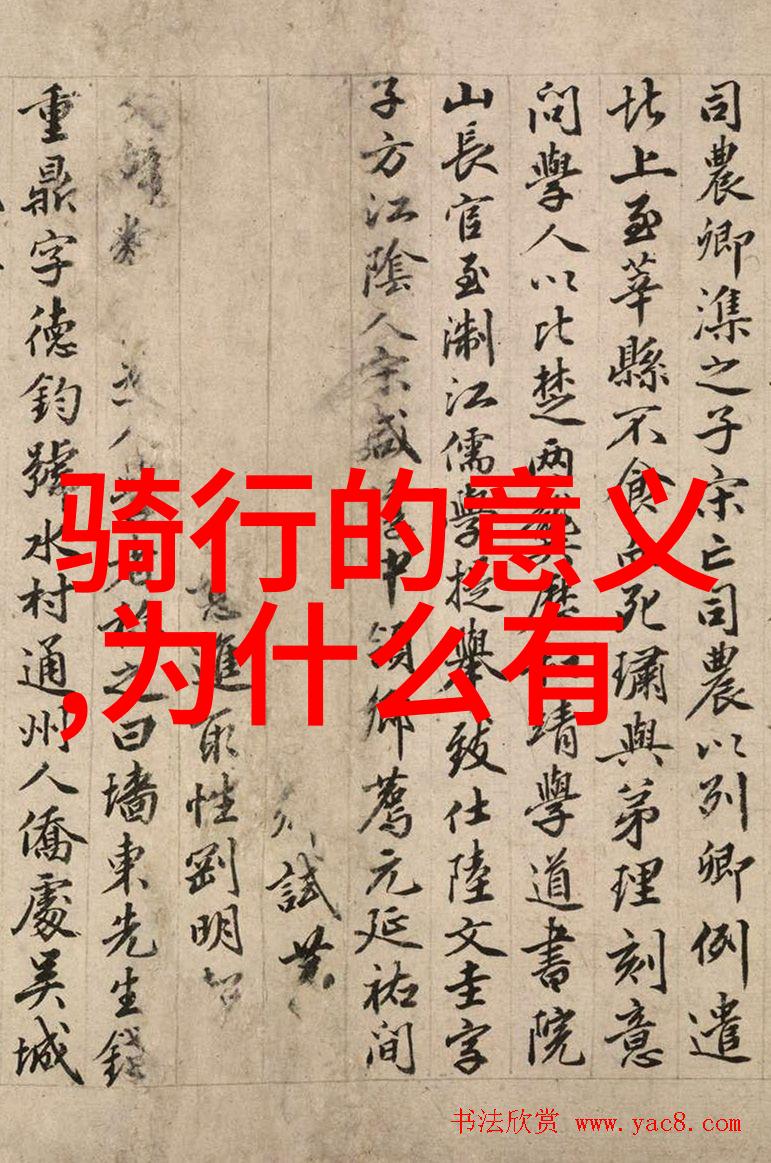 司農卿潗之子宋亡司農以列卿例遣
北上至莘縣不食而死璛與弟理刻意
問學人以比楚两歷靖學道書院
山長官至淛江儒學提舉致仕陸文圭字
子方江陰人宋咸中領鄉薦元延祐間
試
進取性剛明
人之曰墻東先生錢
重鼎字德鈞號水村通州人僑處吳城
骑行的意义
,为什么有
书法欣赏 www.yac8.com